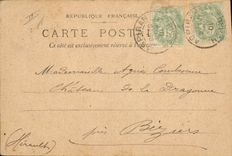 RÉPUBLIQUE FRANÇAISE
CARTE POSTALE
Ce côté est exclusivement réservé à l'adresse
Mademoiselle Agnès
Château de la Dragonne
près Béziers
(Hérault)